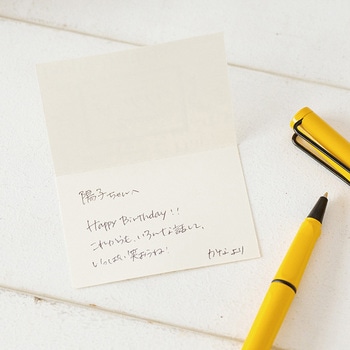 陽子ちゃんへ
Happy Birthday!!
これからも、いろんな話して、
いっぱい笑おうね!
かなこより